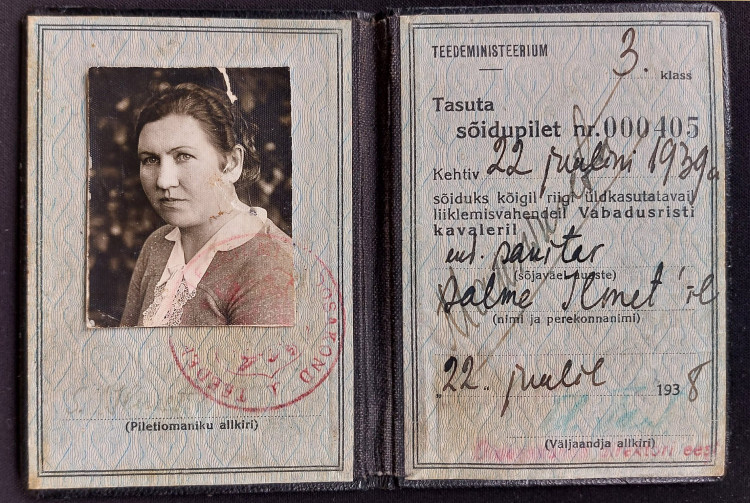 S. Ilmet
(Piletiomaniku allkiri)
TEEDEMINISTEERIUM
3. klass
Tasuta
sõidupilet nr. 000405
Kehtiv 22 juulini 1939 a
sõiduks kõigil riigi üldkasutatavail
liiklemisvahendeil Vabadusristi
kavaleril
end. sanitar
(sõjaväel. auaste)
Salme Ilmet'il
(nimi ja perekonnanimi)
"22." juulil 1938
(Väljaandja allkiri)